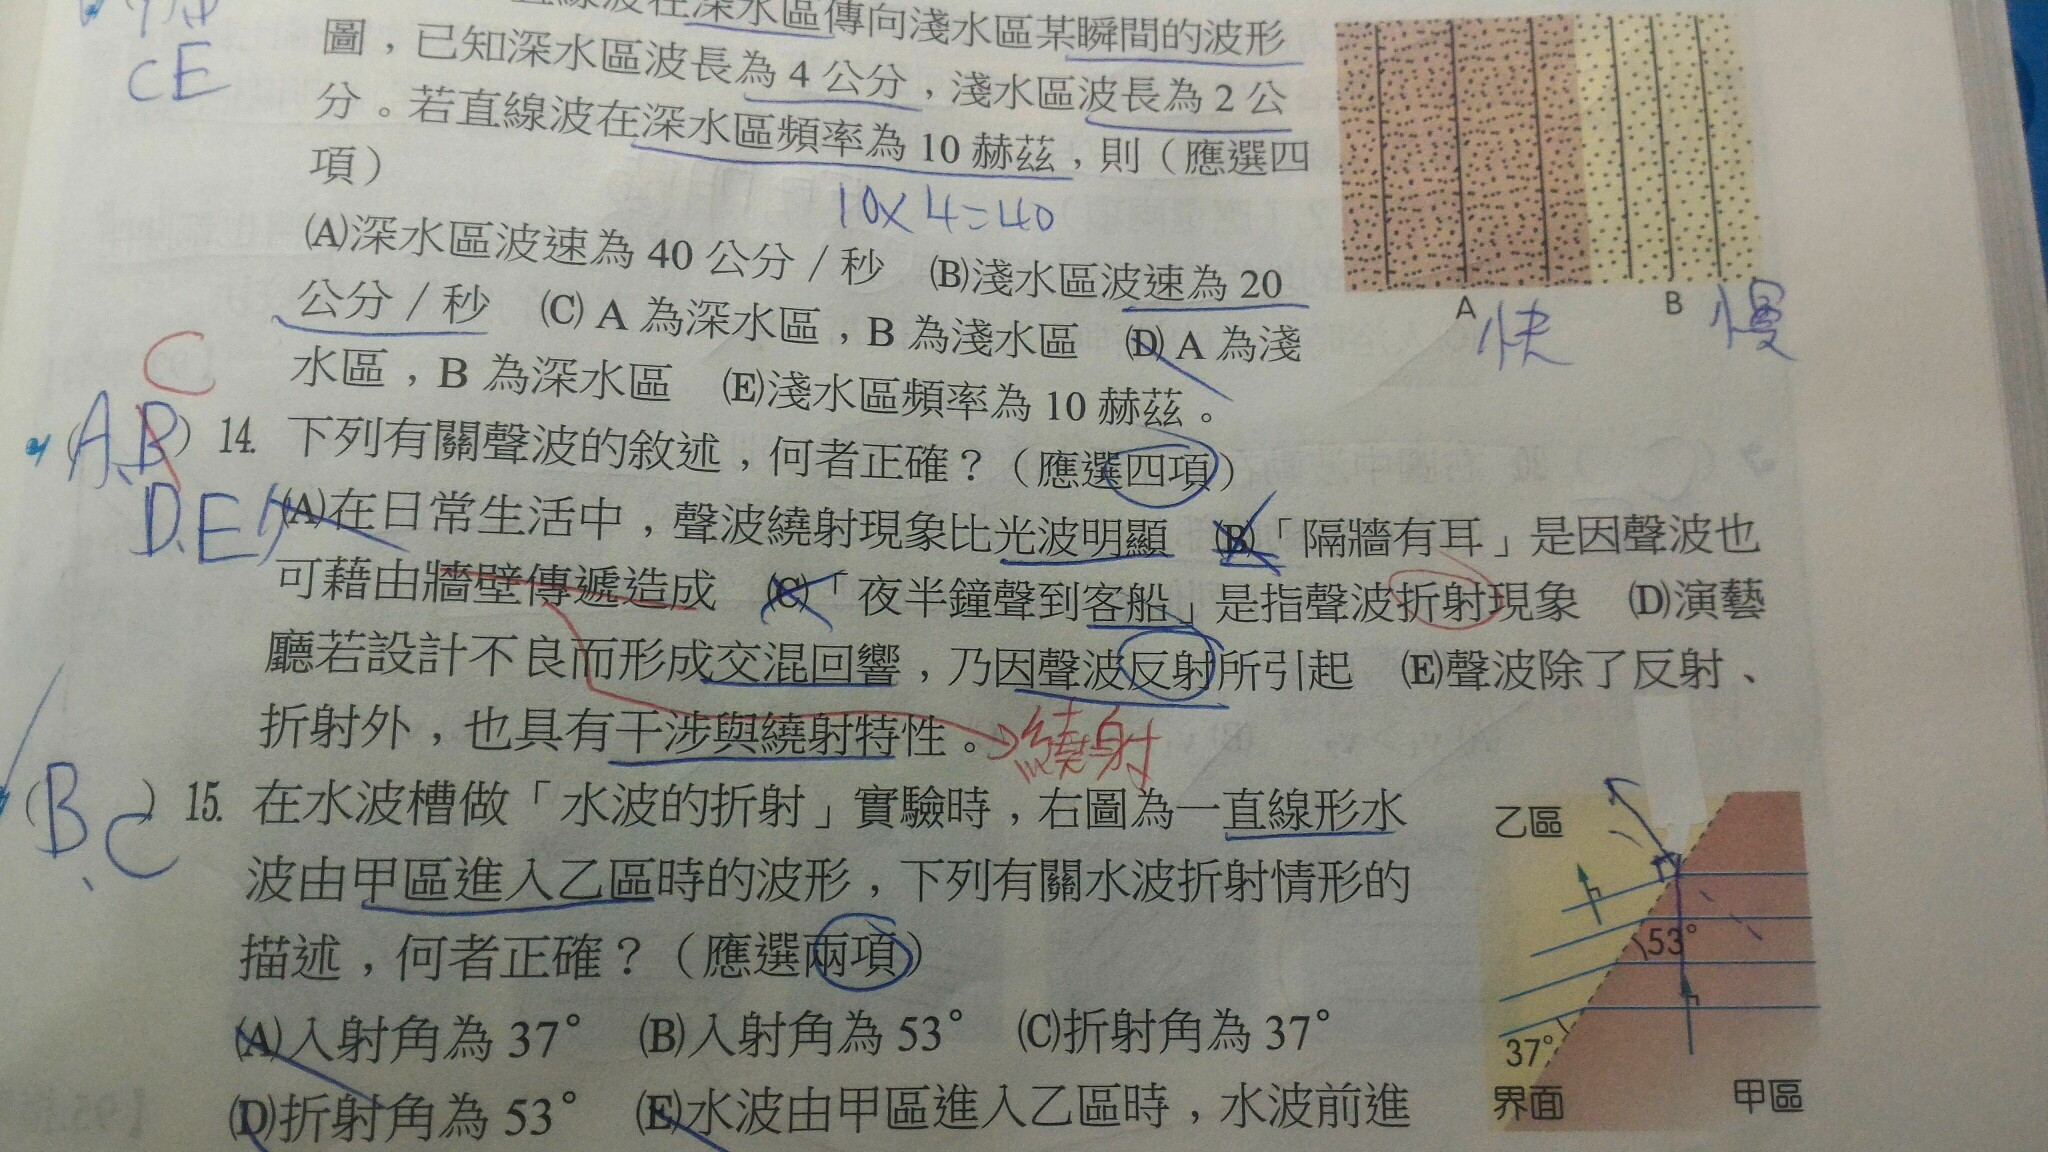 CE
直線波在深水區傳向淺水區某瞬間的波形
圖，已知深水區波長為 4 公分，淺水區波長為 2 公
分。若直線波在深水區頻率為 10 赫茲，則（應選四
項）
10×4=40
(A)深水區波速為 40 公分／秒 (B)淺水區波速為 20
公分／秒 (C) A 為深水區，B 為淺水區 (D) A 為淺
水區，B 為深水區 (E)淺水區頻率為 10 赫茲。
A 快 B 慢
C
(A、B) 14. 下列有關聲波的敘述，何者正確？（應選四項）
D、E
(A)在日常生活中，聲波繞射現象比光波明顯 (B)「隔牆有耳」是因聲波也
可藉由牆壁傳遞造成 (C)「夜半鐘聲到客船」是指聲波折射現象 (D)演藝
廳若設計不良而形成交混回響，乃因聲波反射所引起 (E)聲波除了反射、
折射外，也具有干涉與繞射特性。
繞射
(B、C) 15. 在水波槽做「水波的折射」實驗時，右圖為一直線形水
波由甲區進入乙區時的波形，下列有關水波折射情形的
描述，何者正確？（應選兩項）
(A)入射角為 37° (B)入射角為 53° (C)折射角為 37°
(D)折射角為 53° (E)水波由甲區進入乙區時，水波前進
乙區
53°
37°
界面 甲區